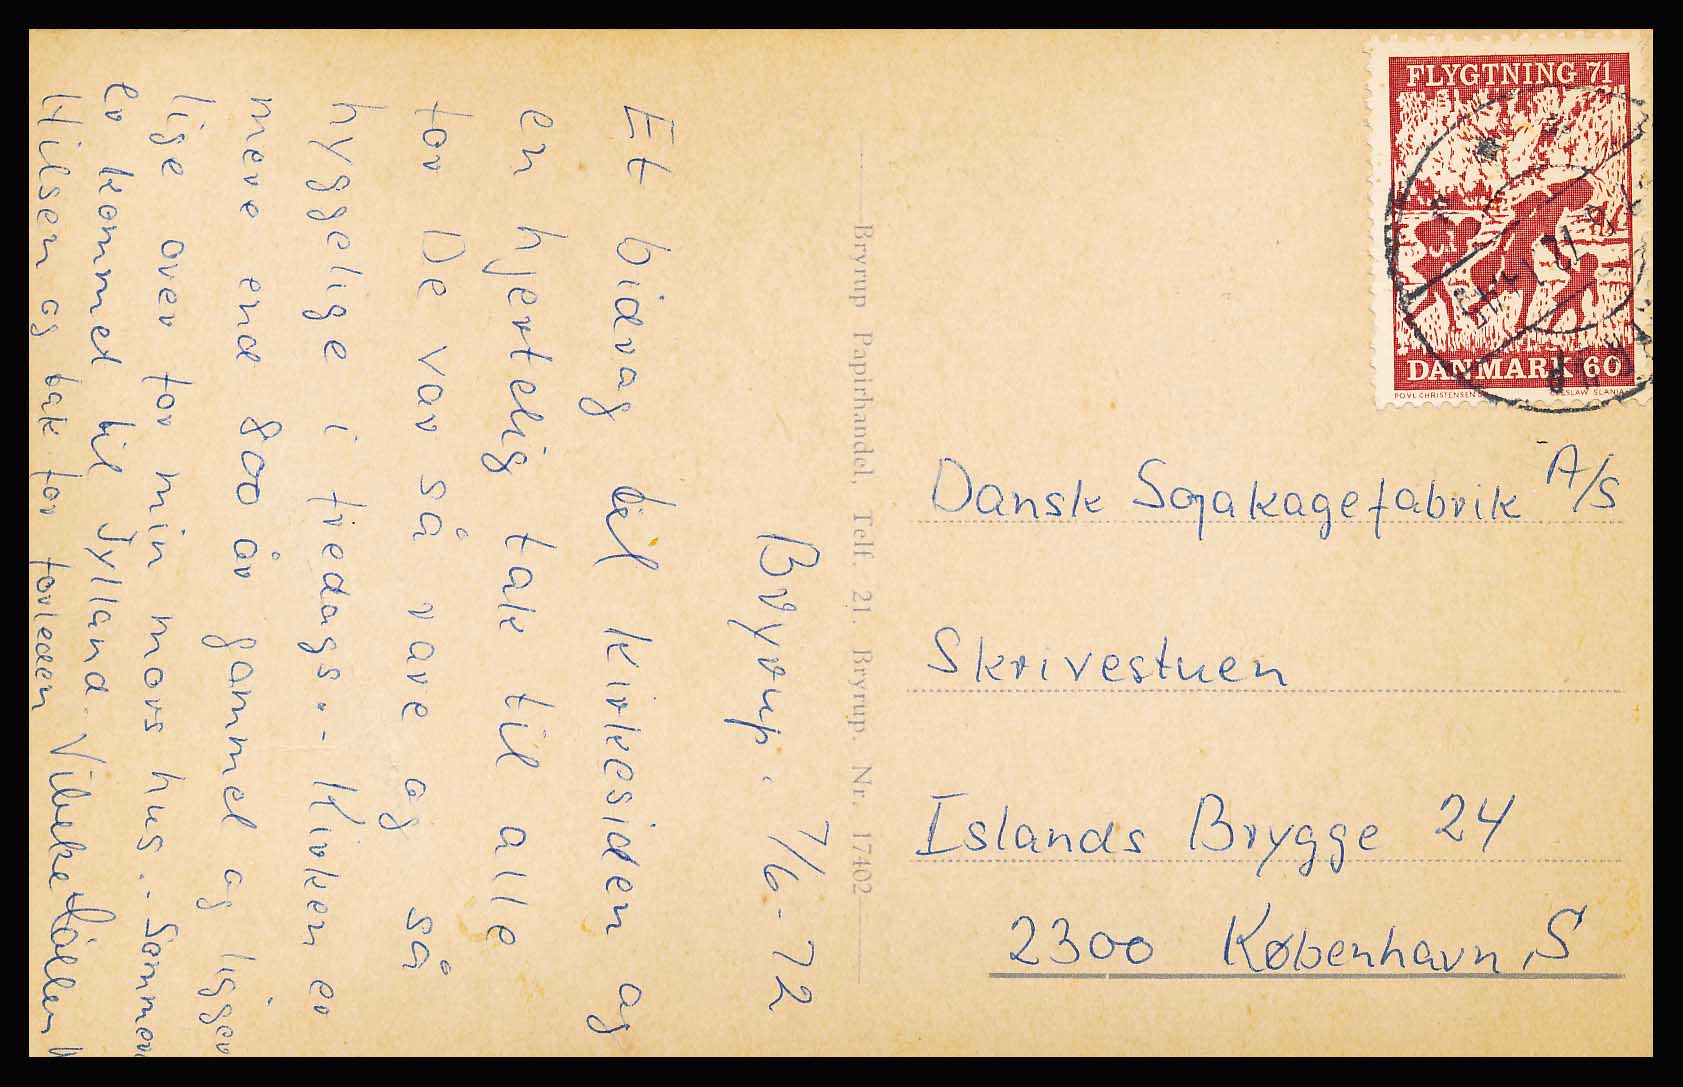 Bryrup. 7/6-72
Et bidrag til kirkesiden og
en hjertelig tak til alle
for De var så rare og så
hyggelige i fredags.- Kirken er
mere end 800 år gammel og ligger
lige over for min mors hus.- Sommeren
er kommet til Jylland.
Hilsen og tak for forleden
Vibeke
Bryrup Papirhandel, Telf. 21, Bryrup. Nr. 17402
FLYGTNING 71
DANMARK 60
POVL CHRISTENSEN
CZESLAW SLANIA
Dansk Sojakagefabrik A/S
Skrivestuen
Islands Brygge 24
2300 København S